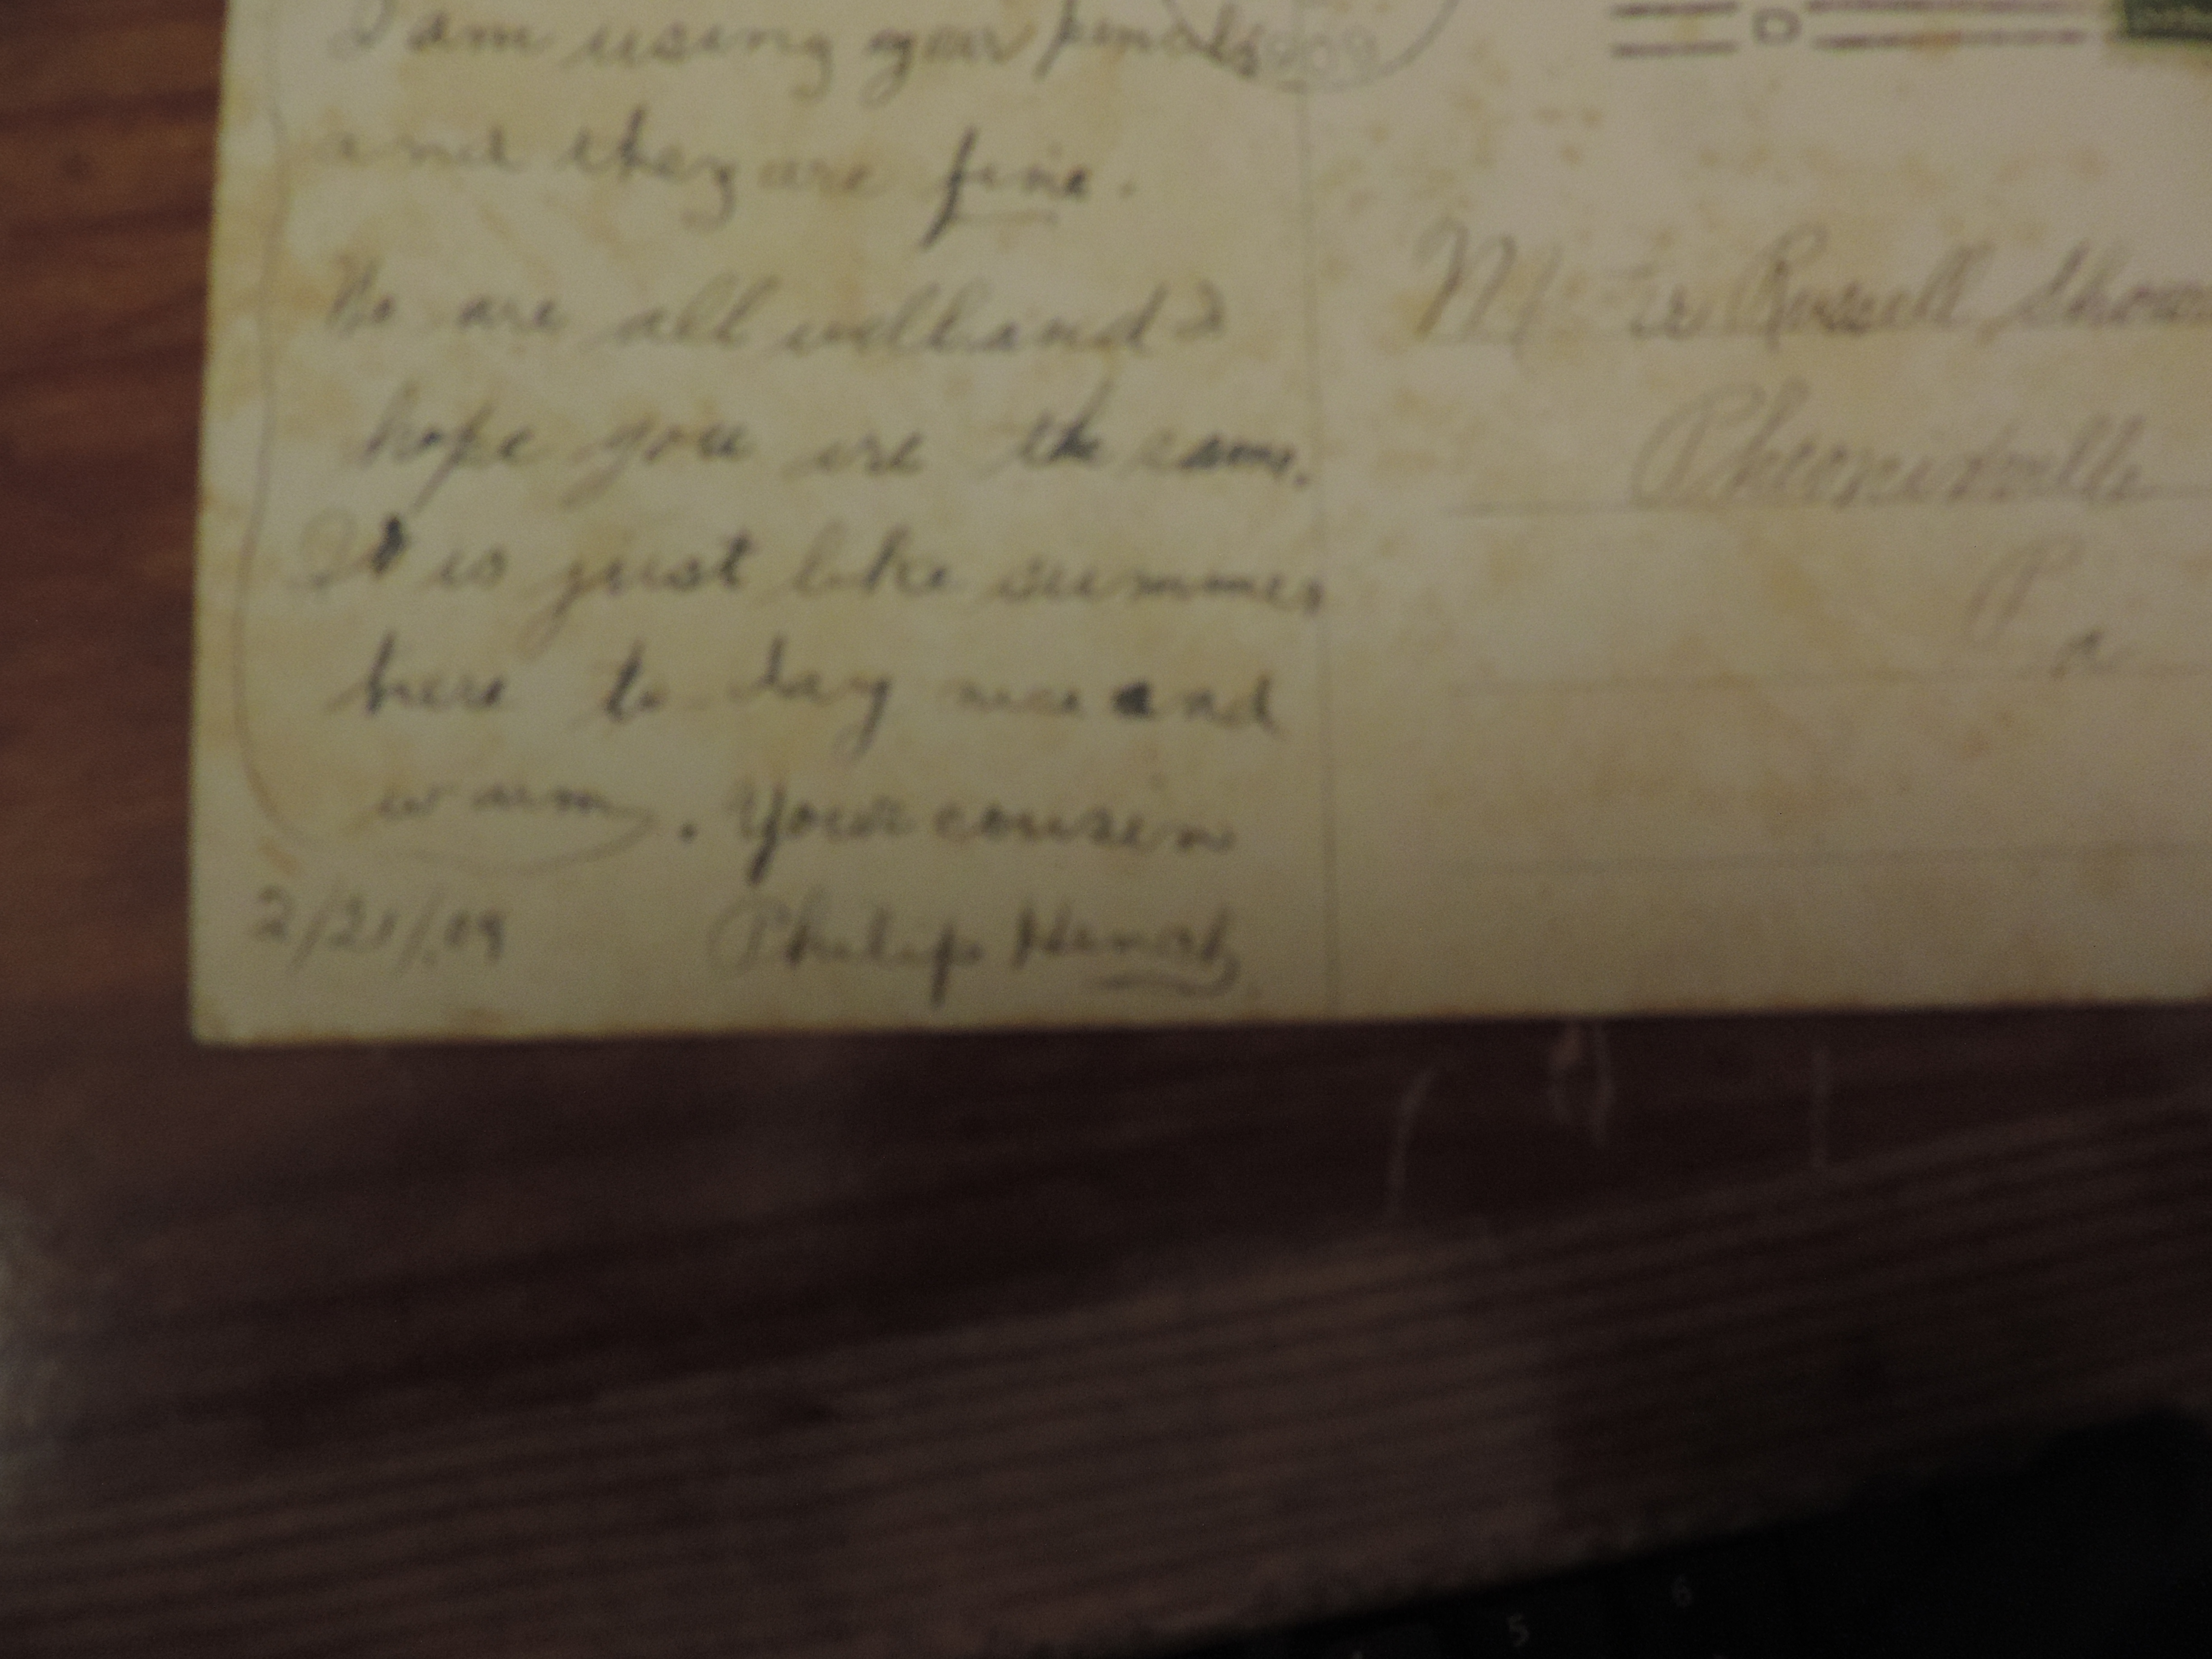 I am using your pencils
and they are fine.
We are all well and I
hope you are the same.
It is just like summer
here to-day nice and
warm. Your cousin
2/21/09 Philip
1909
D
Master Russell
Phoenixville
Pa
5
6